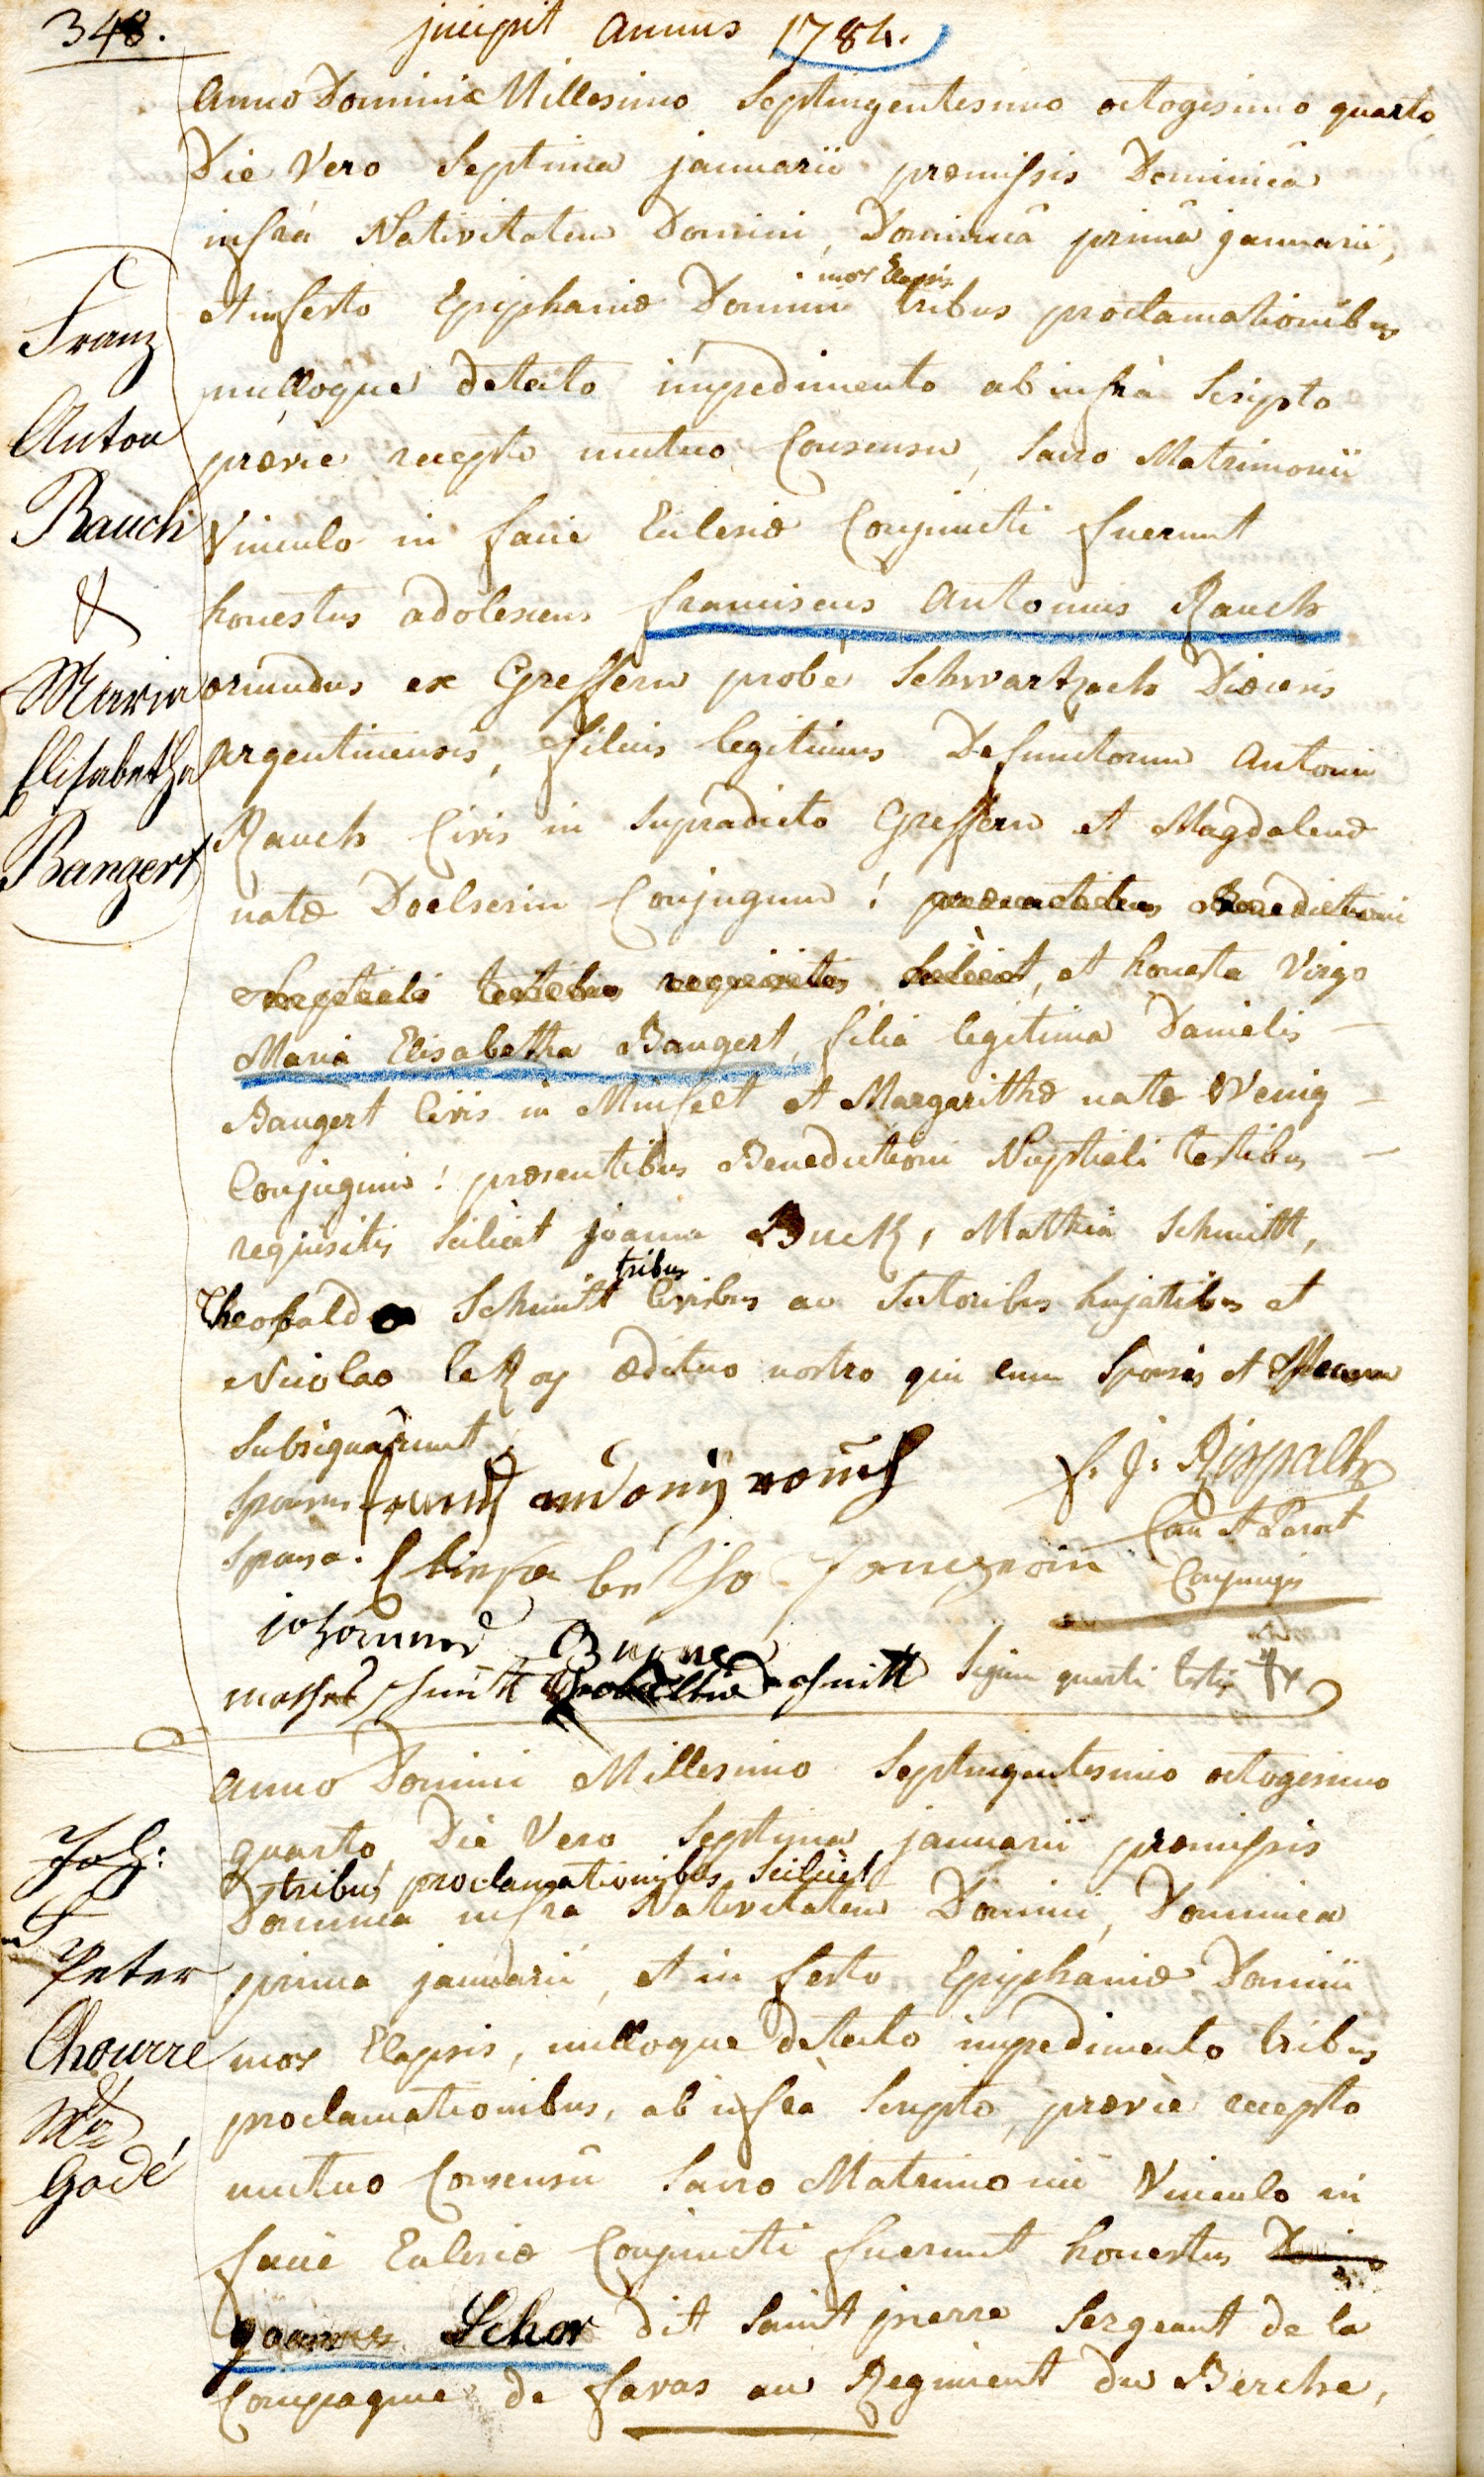 348.
incipit Annus 1784.
Anno Domini Millesimo Septingentesimo octogesimo quarto
Die Vero Septima januarii præmissis Dominicâ
infrà Nativitatem Domini, Dominicâ primâ januarii,
et in festo Epiphaniæ Domini mox Elapsis tribus proclamationibus
nulloque detecto impedimento ab infrà Scripto
prævie recepto mutuo Consensu, Sacro Matrimonii
Vinculo in facie Ecclesiæ Conjuncti fuerunt
honestus adolescens franciscus Antonius Rauch
oriundus ex Greffern probe Schwartzach Diœcesis
Argentinensis, filius legitimus Defunctorum Antonii
Rauch Civis in Supradicto Greffern et Magdalenæ
natæ Doelserin Conjugum! præsentibus Benedictioni
Nuptiali testibus requisitis Scilicet, et honesta Virgo
Maria Elisabetha Bangert, filia legitima Danielis
Bangert Civis in Minfelt et Margarithæ natæ Wenig
Conjugum! præsentibus Benedictioni Nuptiali testibus
requisitis Scilicet joanne Buck, Mathia Schmitt,
Theobaldo Schmitt tribus Civibus ac Sutoribus hujatibus et
Nicolao le Roy ædituo nostro qui cum Sponsis et Mecum
Subsignârunt
Sponsus
Sponsa.
johannes
mathes schmitt schmitt Signum quarti testis
Franz
Anton
Rauch
&
Maria
Elisabetha
Bangert
Anno Domini Millesimo Septingentesimo octogesimo
quarto, Die Vero Septima januarii præmissis
tribus proclamationibus Scilicet
Dominica infra Nativitatem Domini, Dominica
prima januarii, et in festo Epiphaniæ Domini
mox Elapsis, nulloque detecto impedimento tribus
proclamationibus, ab infrà Scripto, prævie recepto
mutuo Consensû Sacro Matrimonii Vinculo in
facie Ecclesiæ Conjuncti fuerunt honestus
joannes Schor dit Saint pierre Sergeant de la
Compagnie de favas au Regiment du Berche,
Joh:
Peter
Chourre
&
Gode